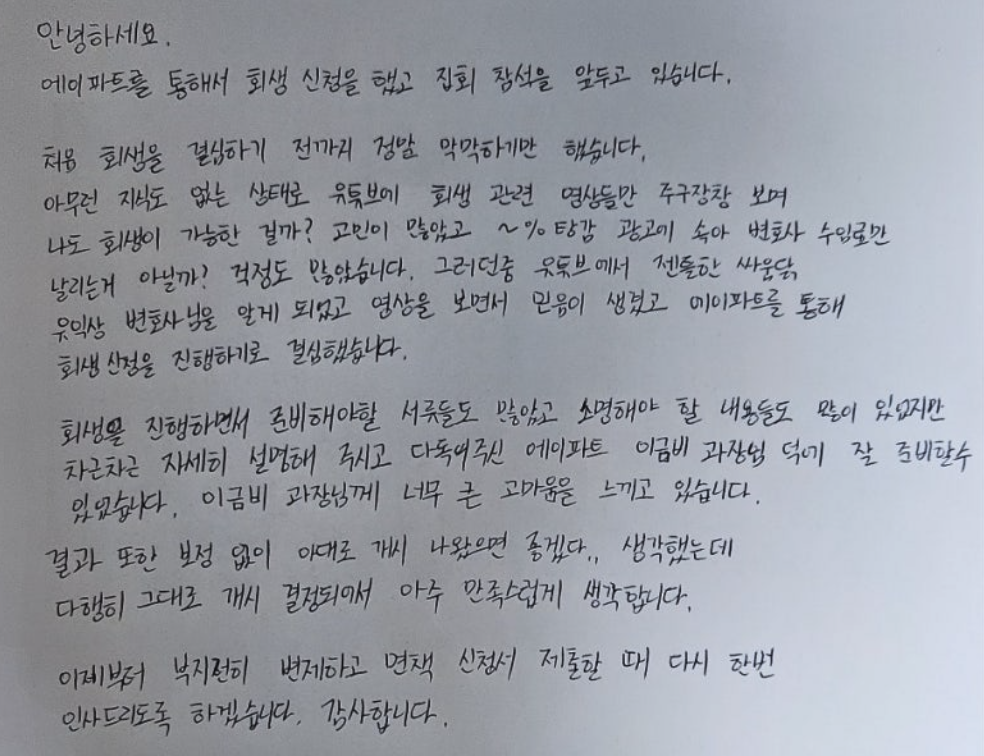 안녕하세요.
에이파트를 통해서 회생 신청을 했고 집회 참석을 앞두고 있습니다.
처음 회생을 결심하기 전까지 정말 막막하기만 했습니다.
아무런 지식도 없는 상태로 유튜브에 회생 관련 영상들만 주구장창 보며
나도 회생이 가능한 걸까? 고민이 많았고 ~% 탕감 광고에 속아 변호사 수임료만
날리는거 아닐까? 걱정도 많았습니다. 그러던중 유튜브에서 젠틀한 싸움닭
유익상 변호사님을 알게 되었고 영상을 보면서 믿음이 생겼고 에이파트를 통해
회생 신청을 진행하기로 결심했습니다.
회생을 진행하면서 준비해야할 서류들도 많았고 소명해야 할 내용들도 많이 있었지만
차근차근 자세히 설명해 주시고 다독여주신 에이파트 이금비 과장님 덕에 잘 준비할수
있었습니다. 이금비 과장님께 너무 큰 고마움을 느끼고 있습니다.
결과 또한 보정 없이 이대로 개시 나왔으면 좋겠다.. 생각했는데
다행히 그대로 개시 결정되어서 아주 만족스럽게 생각합니다.
이제부터 부지런히 변제하고 면책 신청서 제출할 때 다시 한번
인사드리도록 하겠습니다. 감사합니다.